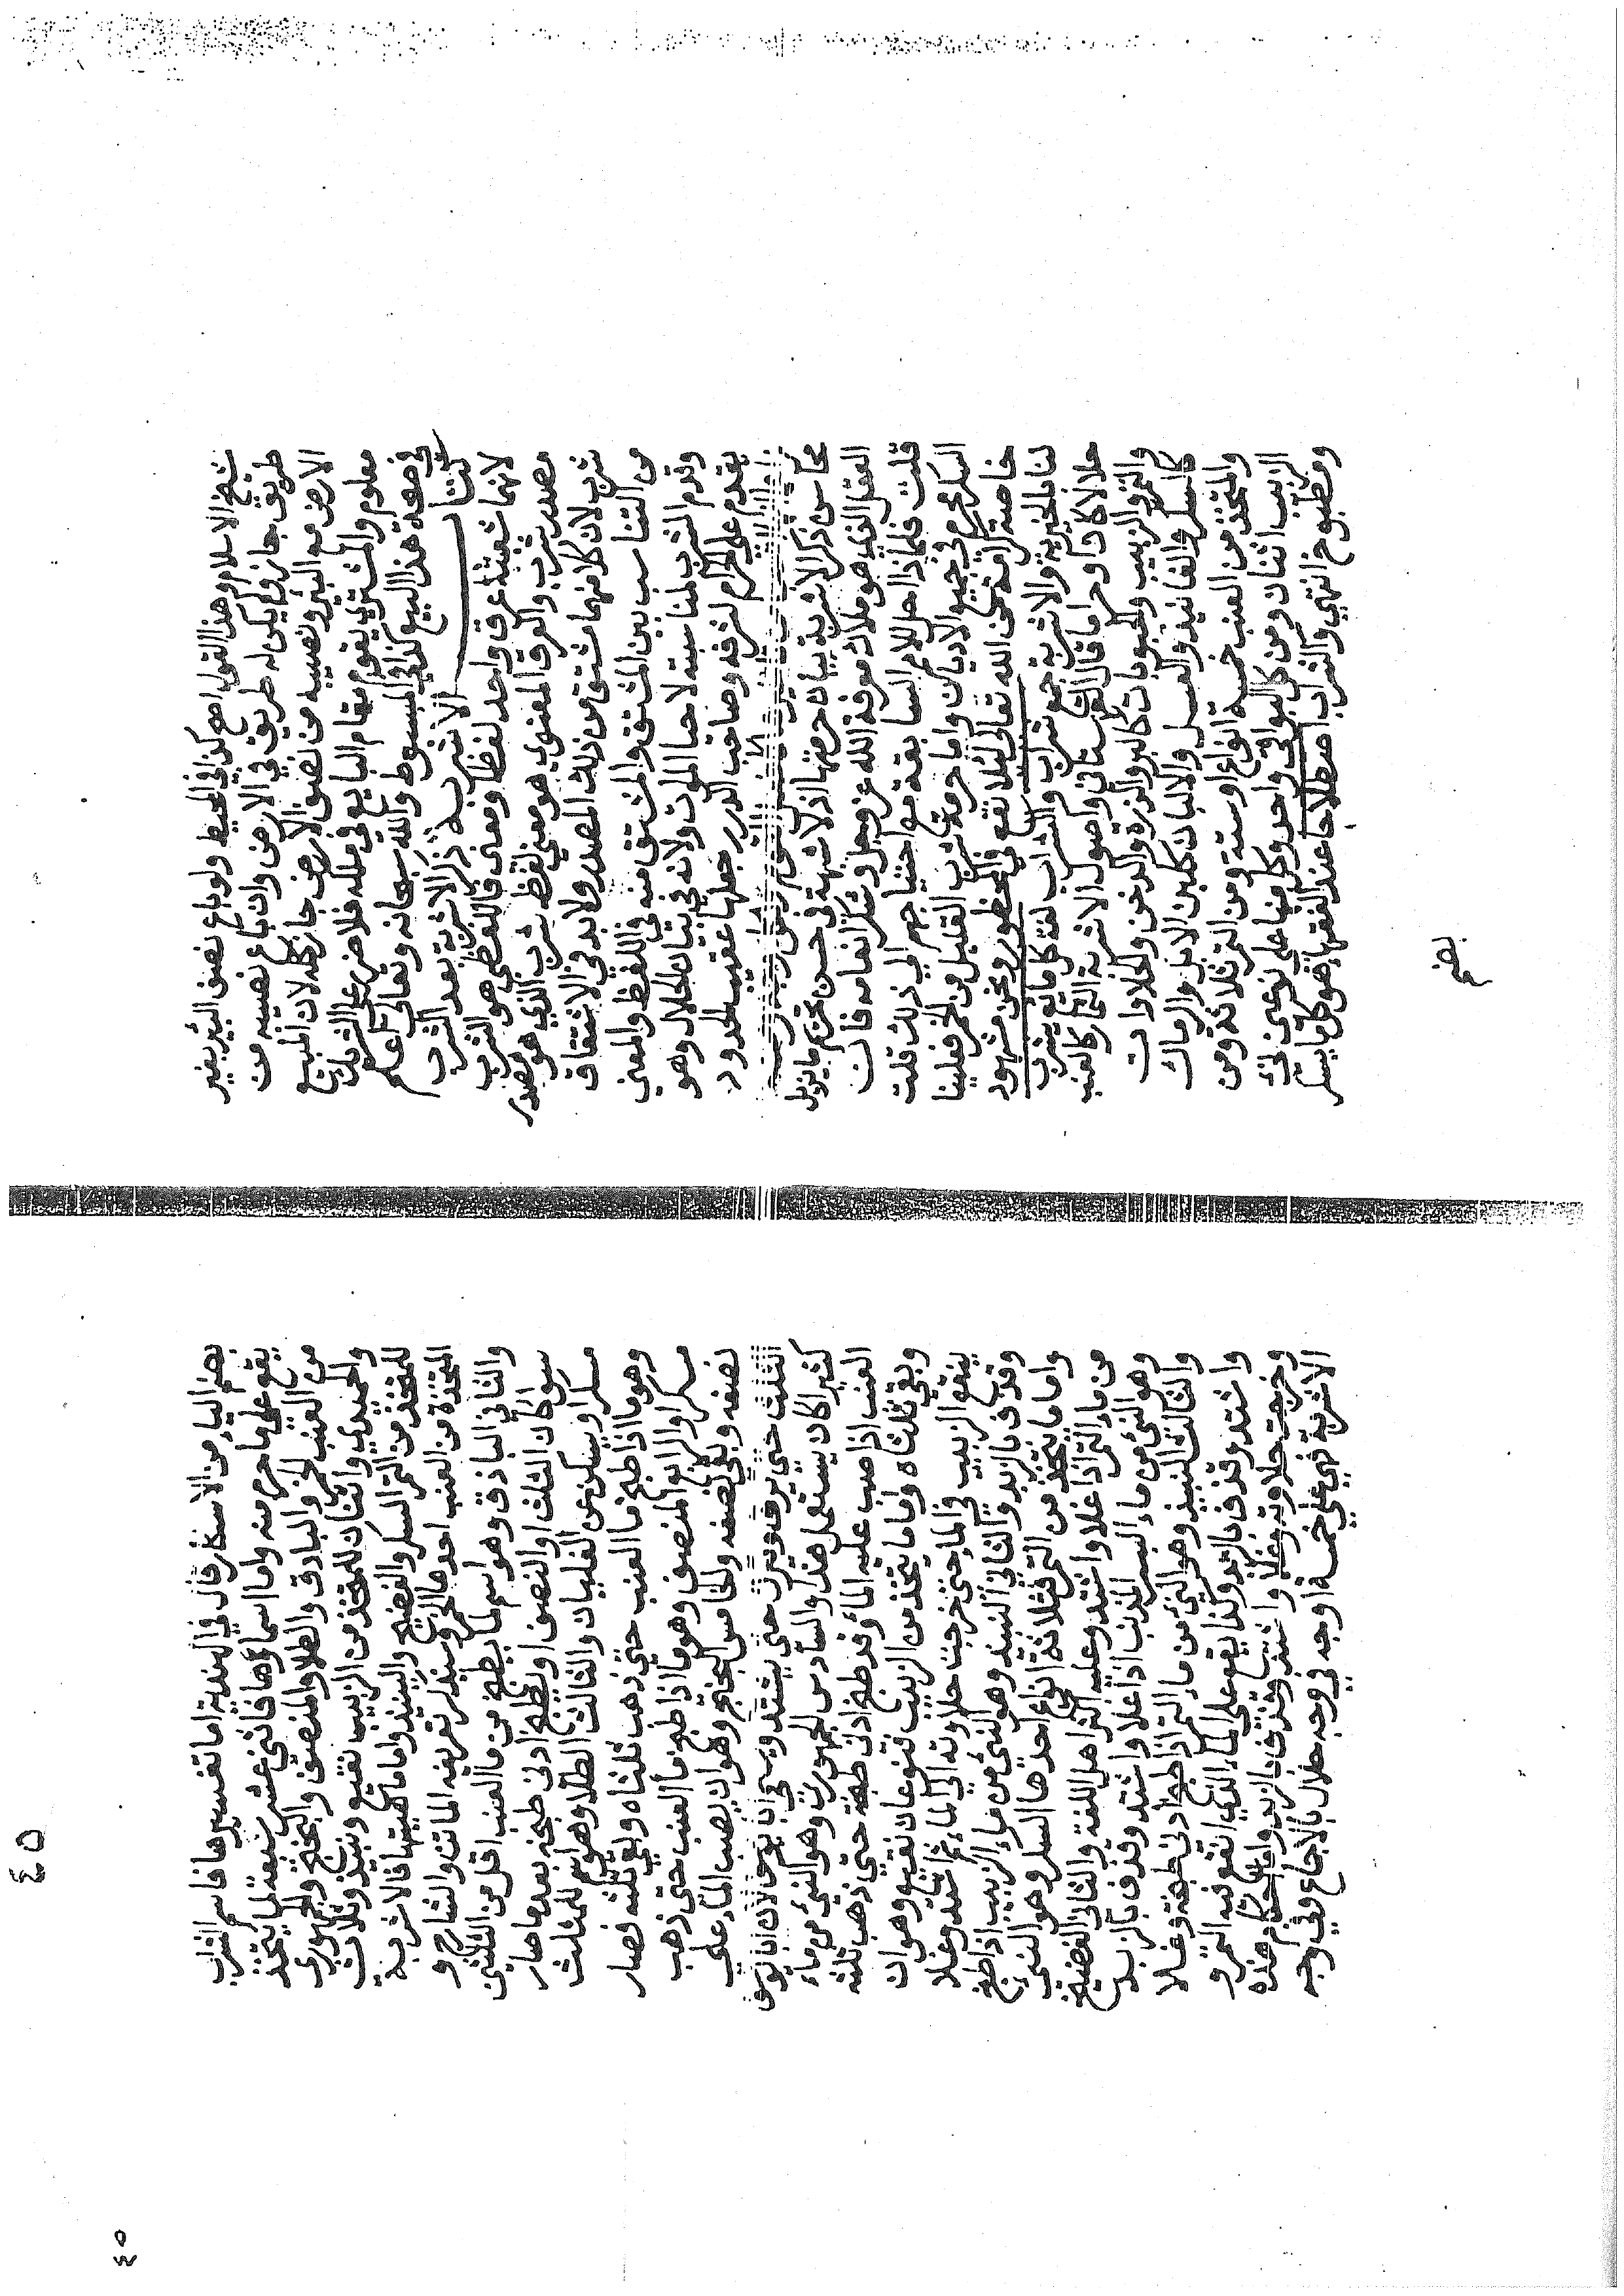 شيخ الاسلام وهذا القول اصح كذا في المحيط ولو باع نصف البئر بغير
طريق جاز ولم يكن له طريق في الارض وان باع نصيبه من
الارض مع البئر ونصيبه من نصف الارض جاز كله لان المبيع
معلوم والمشتري يقوم مقام البايع في ملكه فلا ضرر على الشريك
في صحة هذا البيع كذا في المبسوط والله سبحانه وتعالى اعلم
كتاب الاشربة ذكر الاشربة بعد الشرب
لانهما شعبتا عرق واحد لفظا ومعنى فاللفظي هو الشرب
مصدر شرب والعرق المعنوي هو معنى لفظ شرب الذي هو مصدر
شرب لان كلا منهما مشتق من ذلك المصدر ولا بد في الاشتقاق
من التناسب بين المشتق والمشتق منه في اللفظ والمعنى
وقدم الشرب لمناسبته لاحيا الموات ولانه في بيان الحلال وهو
يقدم على الحرام لشرفه وصاحب الدرر جعلها عقيب الحدود
محاسن ذكر الاشربة بيان حرمتها اذ لا شبهة في حسن تحريم ما يزيل
العقل الذي هو ملاك معرفة الله عز وجل وشكر انعامه فان
قلت فلماذا احل للامم السابقة مع احتياجهم الي ذلك قلت
السكر محرم في جميع الاديان واما حرمة شرب القليل من الخمر فعلينا
خاصة كرامة من الله تعالى لئلا نقع في المحظور ونحن مشهود
لنا بالخيرية والاشربة جمع شراب والشراب لغة كل مائع يشرب
حلالا كان او حراما قال القهستاني واصول الاشربة الثمار كالعنب
والتمر والزبيب والحبوبات كالبر والذرة والدخن والحلاوات
كالسكر والفانيد والعسل والالبان كلبن الابل والرماك
والمتخذ من العنب خمسة انواع او ستة ومن التمر ثلاثة ومن
الزبيب اثنان ومن كل البواقي واحد وكل منها على نوعين نئ
ومطبوخ انتهى والشراب اصطلاحا عند الفقهاء هو كل ما يسكر
بضم
بضم الياء من الاسكار قال في الهندية اما تفسيرها فاسم الشراب
يقع على ما حرم منه واما اسماؤها فاثني عشر سبعة لما يتخذ
من العنب الخمر والباذق والطلاء والمنصف والبختج والجمهوري
والحميدي واثنان للمتخذ من الزبيب نقيع ونبيذ وثلاث
للمتخذ من التمر السكر والفضيخ والنبيذ واما ماهيتها فالاشربة
المتخذة من العنب احدها الخمر وسيذكر تعريفه الماتن والشارح و
والثاني الباذق وهو اسم لما يطبخ من ماء العنب اقل من الثلثين
سوا كان الثلث او النصف او يطبخ ادنى طبخه بعد ما صار
مسكرا ويسكن عن الغليان والثالث الطلا وهو اسم للمثلث
وهو ما اذا طبخ ماء العنب حتى ذهب ثلثاه وبقي ثلثه فصار
مسكرا والرابع المنصف وهو ما اذا طبخ ماء العنب حتى ذهب
نصفه وبقي نصفه والخامس البختج وهو ان يصب الماء على
الثلث حتى يرق ويترك حتى يشتد ويسمى ابا يوسف لان ابا يوسف
كثيرا كان يستعمل هذا والسادس الجمهوري وهو النئ من ماء
العنب اذا صب عليه الماء وقد طبخ ادنى طبخة حتى ذهب ثلثه
وبقي ثلثاه واما ما يتخذ من الزبيب فنوعان نقيع وهو ان
ينقع الزبيب في الماء حتى خرجت حلاوته الى الماء ثم اشتد وغلا
وقذف بالزبد والثاني النبيذ وهو النئ من ماء الزبيب اذا طبخ
واما ما يتخذ من التمر فثلاثة انواع احدها السكر وهو النئ
من ماء التمر اذا غلا واشتد وعليه اكثر اهل اللغة والثاني الفضيخ
وهو النئ من ماء البسر المذنب اذا غلا واشتد وقذف بالزبد
والثالث النبيذ وهو النئ من ماء التمر اذا طبخ ادنى طبخة وغلا
واشتد وقذف بالزبد وكذا يقع على الماء الذي انقع فيه التمر و
وخرجت حلاوته وغلا واشتد وقذف بالزبد واما احكام هذه
الاشربة فهي على خمسة اوجه في وجه حلال بالاجماع وفي وجه
٤٥
٤٥